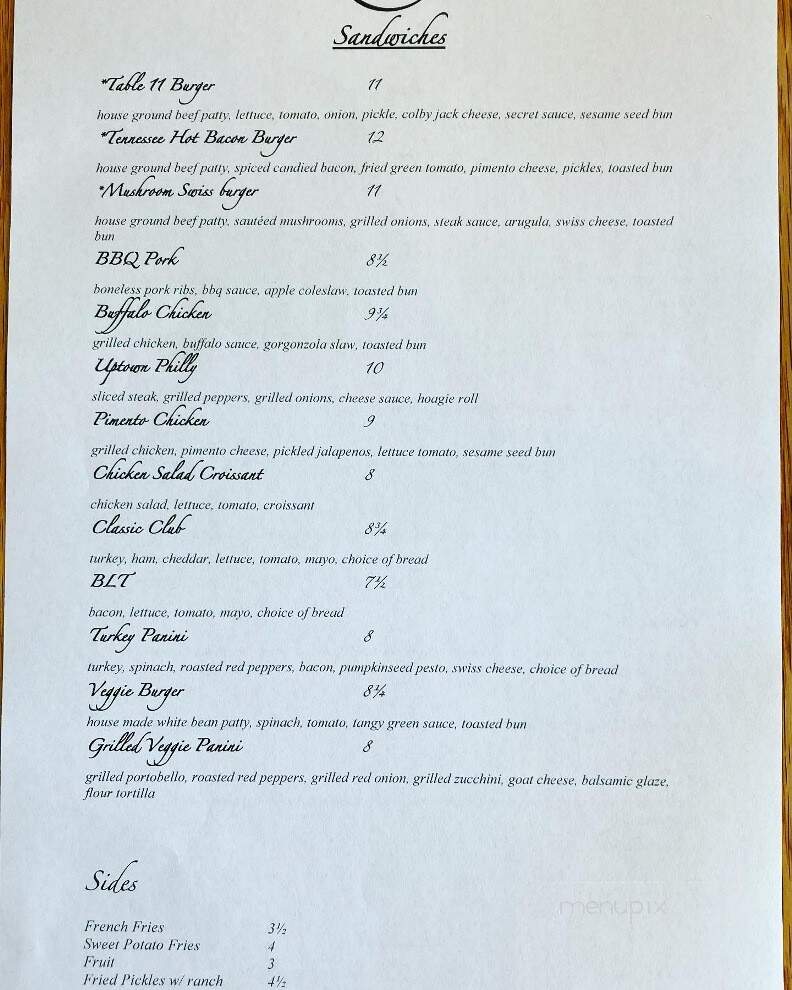 Sandwiches
*Table 11 Burger 11
house ground beef patty, lettuce, tomato, onion, pickle, colby jack cheese, secret sauce, sesame seed bun
*Tennessee Hot Bacon Burger 12
house ground beef patty, spiced candied bacon, fried green tomato, pimento cheese, pickles, toasted bun
*Mushroom Swiss burger 11
house ground beef patty, sautéed mushrooms, grilled onions, steak sauce, arugula, swiss cheese, toasted
bun
BBQ Pork 8½
boneless pork ribs, bbq sauce, apple coleslaw, toasted bun
Buffalo Chicken 9¼
grilled chicken, buffalo sauce, gorgonzola slaw, toasted bun
Uptown Philly 10
sliced steak, grilled peppers, grilled onions, cheese sauce, hoagie roll
Pimento Chicken 9
grilled chicken, pimento cheese, pickled jalapenos, lettuce tomato, sesame seed bun
Chicken Salad Croissant 8
chicken salad, lettuce, tomato, croissant
Classic Club 8¾
turkey, ham, cheddar, lettuce, tomato, mayo, choice of bread
BLT 7½
bacon, lettuce, tomato, mayo, choice of bread
Turkey Panini 8
turkey, spinach, roasted red peppers, bacon, pumpkinseed pesto, swiss cheese, choice of bread
Veggie Burger 8¼
house made white bean patty, spinach, tomato, tangy green sauce, toasted bun
Grilled Veggie Panini 8
grilled portobello, roasted red peppers, grilled red onion, grilled zucchini, goat cheese, balsamic glaze,
flour tortilla
Sides
menupix
French Fries 3½
Sweet Potato Fries 4
Fruit 3
Fried Pickles w/ ranch 4½